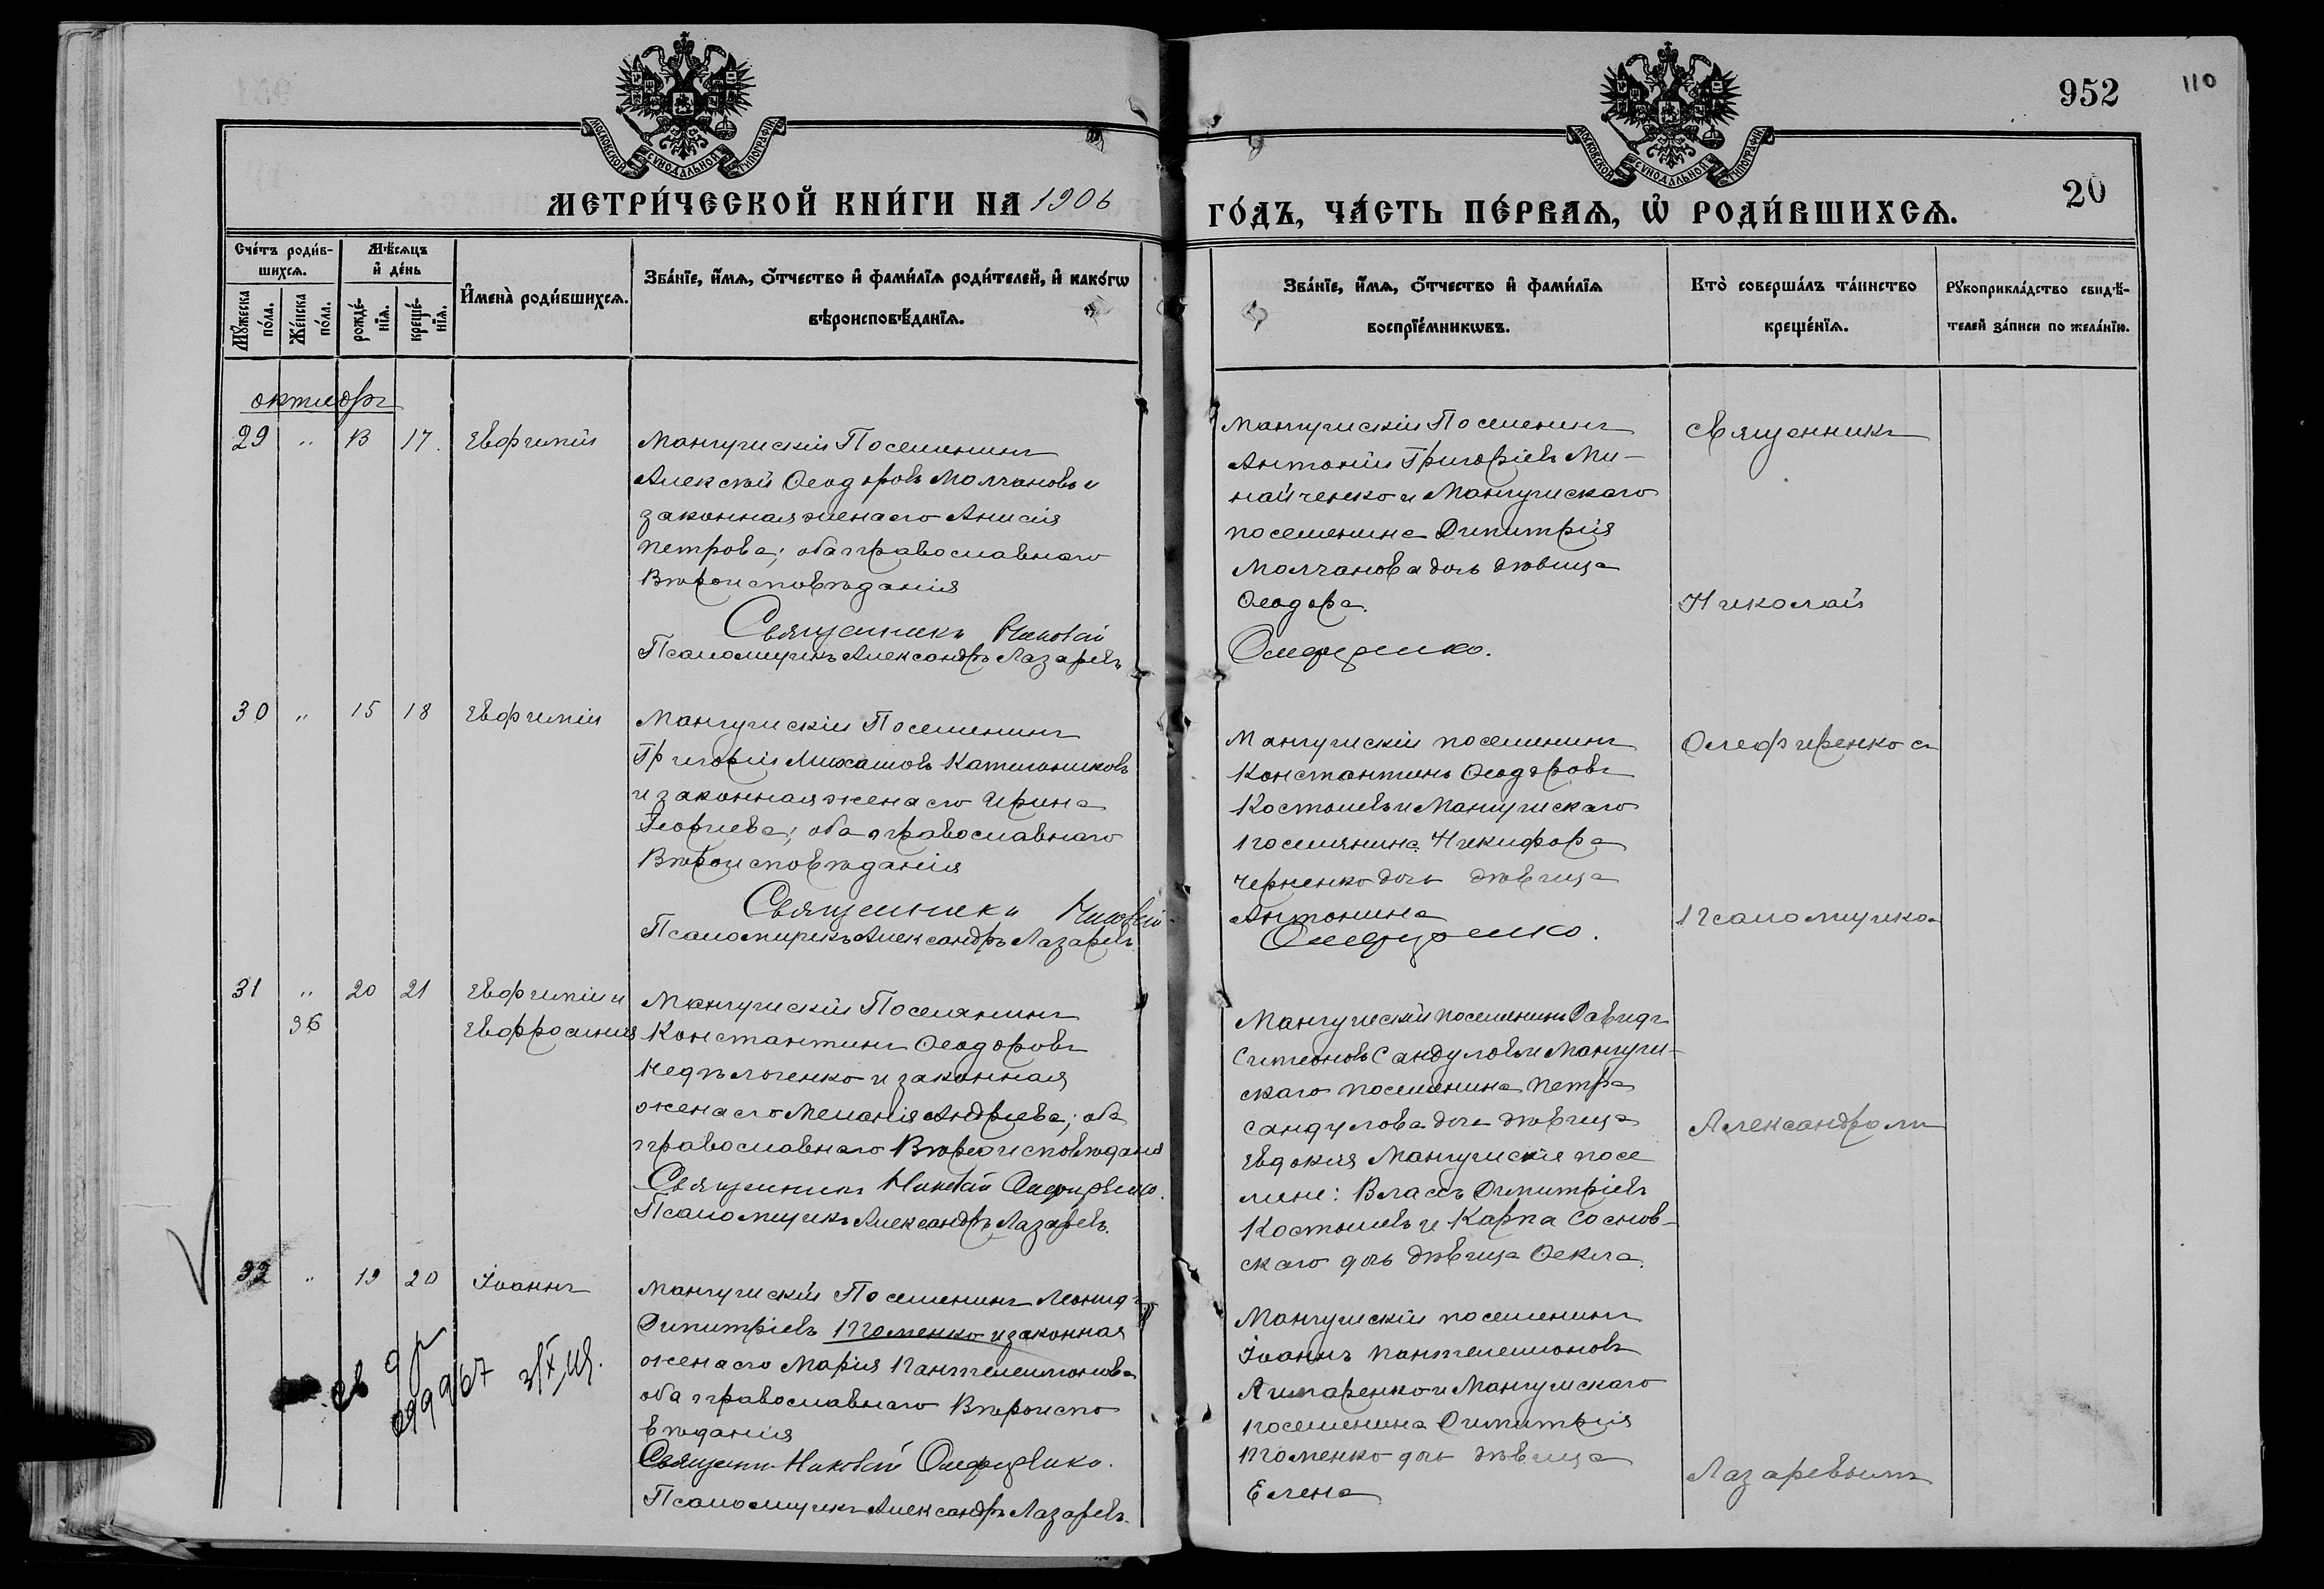 952
110
МОСКОВСКОЙ СѴНОДАЛЬНОЙ ТИПОГРАФІИ
МОСКОВСКОЙ СѴНОДАЛЬНОЙ ТИПОГРАФІИ
МЕТРИ́ЧЕСКОЙ КНИ́ГИ НА 1906
ГО́ДЪ, ЧА́СТЬ ПЕ́РВАѦ, Ѡ РОДИ́ВШИХСѦ.
20
Сче́тъ роди́в-
шихсѧ.
Мꙋ́жеска по́ла.
Же́нска по́ла.
Мѣ́сѧцъ
и҆ де́нь
рожде́-
нїѧ.
креще́-
нїѧ.
И҆мена̀ роди́вшихсѧ.
Зва́нїе, и҆́мѧ, ѻ҆́тчество и҆ фами́лїѧ роди́телей, и҆ како́гѡ
вѣроисповѣ́данїѧ.
Зва́нїе, и҆́мѧ, ѻ҆́тчество и҆ фами́лїѧ
воспрїе́мникѡвъ.
Кто̀ соверша́лъ та́инство
креще́нїѧ.
Рꙋкоприкла́дство свидѣ́-
телей за́писи по жела́нїю.
октябрь
29 " 13 17. Евфимій
Мангушскій Поселянинъ
Алексѣй Ѳеодоровъ Молчановъ и
законная жена его Анисія
Петрова; оба православнаго
Вѣроисповѣданія
Священникъ Николай
Псаломщикъ Александръ Лазаревъ
Мангушскій Поселянинъ
Антоній Григоріевъ Ми-
найченко и Мангушскаго
поселянина Димитрія
Молчанова дочь дѣвица
Ѳеодора.
Олеференко.
Священникъ
Николай
30 " 15 18 Евфимій
Мангушскій Поселянинъ
Григорій Михаиловъ Катильниковъ
и законная жена его Ирина
Георгіева; оба православнаго
Вѣроисповѣданія
Священникъ Николай
Псаломщикъ Александръ Лазаревъ.
Мангушскій поселянинъ
Константинъ Ѳеодоровъ
Костылевъ и Мангушскаго
поселянина Никифора
Черненко дочь дѣвица
Антонина
Олеференко.
Олефиренко съ
Псаломщико
31 " 20 21 Евфимій и
36 Евфросинія
Мангушскій Поселянинъ
Константинъ Ѳеодоровъ
Недѣльченко и законная
жена его Меланія Андреева; оба
православнаго Вѣроисповѣданія
Священникъ Николай Олефиренко.
Псаломщикъ Александръ Лазаревъ.
Мангушскій поселянинъ Давидъ
Симеоновъ Сандуловъ и Мангуш-
скаго поселянина Петра
Сандулова дочь дѣвица
Евдокія Мангушскіе посе
ляне: Власъ Димитріевъ
Костылевъ и Карпа Соснов-
скаго дочь дѣвица Ѳекла.
Александромъ
32 " 19 20 Іоаннъ
Мангушскій Поселянинъ Леонидъ
Димитріевъ Пгоменко и законная
жена его Марія Пантелеимонова
оба православнаго Вѣроиспо
вѣданія
Священникъ Николай Олефиренко.
Псаломщикъ Александръ Лазаревъ.
Мангушскій поселянинъ
Іоаннъ Пантелеимоновъ
Лимаренко и Мангушскаго
поселянина Димитрія
Пгоменко дочь дѣвица
Елена
Лазаревымъ